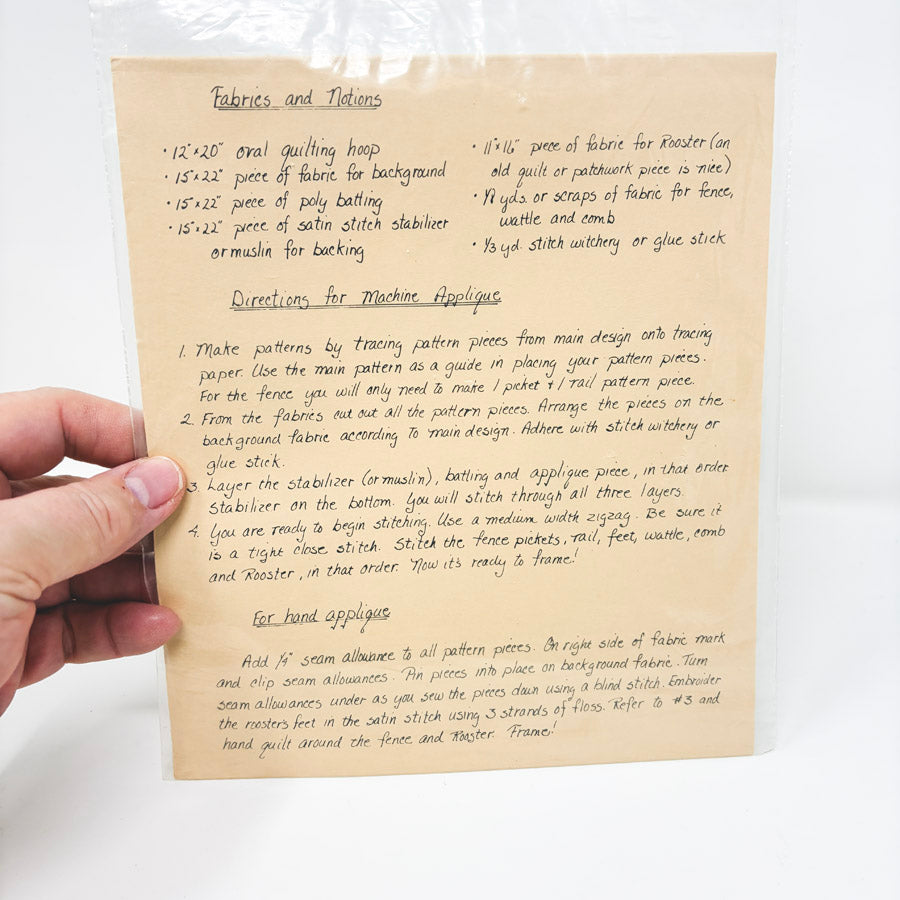 Fabrics and Notions
• 12"x20" oval quilting hoop
• 15"x22" piece of fabric for background
• 15"x22" piece of poly batting
• 15"x22" piece of satin stitch stabilizer
or muslin for backing
• 11"x16" piece of fabric for Rooster (an
old quilt or patchwork piece is nice)
• 1/8 yds. or scraps of fabric for fence,
wattle and comb
• 1/3 yd. stitch witchery or glue stick
Directions for Machine Applique
1. Make patterns by tracing pattern pieces from main design onto tracing
paper. Use the main pattern as a guide in placing your pattern pieces.
For the fence you will only need to make 1 picket + 1 rail pattern piece.
2. From the fabrics cut out all the pattern pieces. Arrange the pieces on the
background fabric according to main design. Adhere with stitch witchery or
glue stick.
3. Layer the stabilizer (or muslin), batting and applique piece, in that order
stabilizer on the bottom. You will stitch through all three layers.
4. You are ready to begin stitching. Use a medium width zigzag. Be sure it
is a tight close stitch. Stitch the fence pickets, rail, feet, wattle, comb
and Rooster, in that order. Now it's ready to frame!
For hand applique
Add 1/4" seam allowance to all pattern pieces. On right side of fabric mark
and clip seam allowances. Pin pieces into place on background fabric. Turn
seam allowances under as you sew the pieces down using a blind stitch. Embroider
the rooster's feet in the satin stitch using 3 strands of floss. Refer to #3 and
hand quilt around the fence and Rooster. Frame!